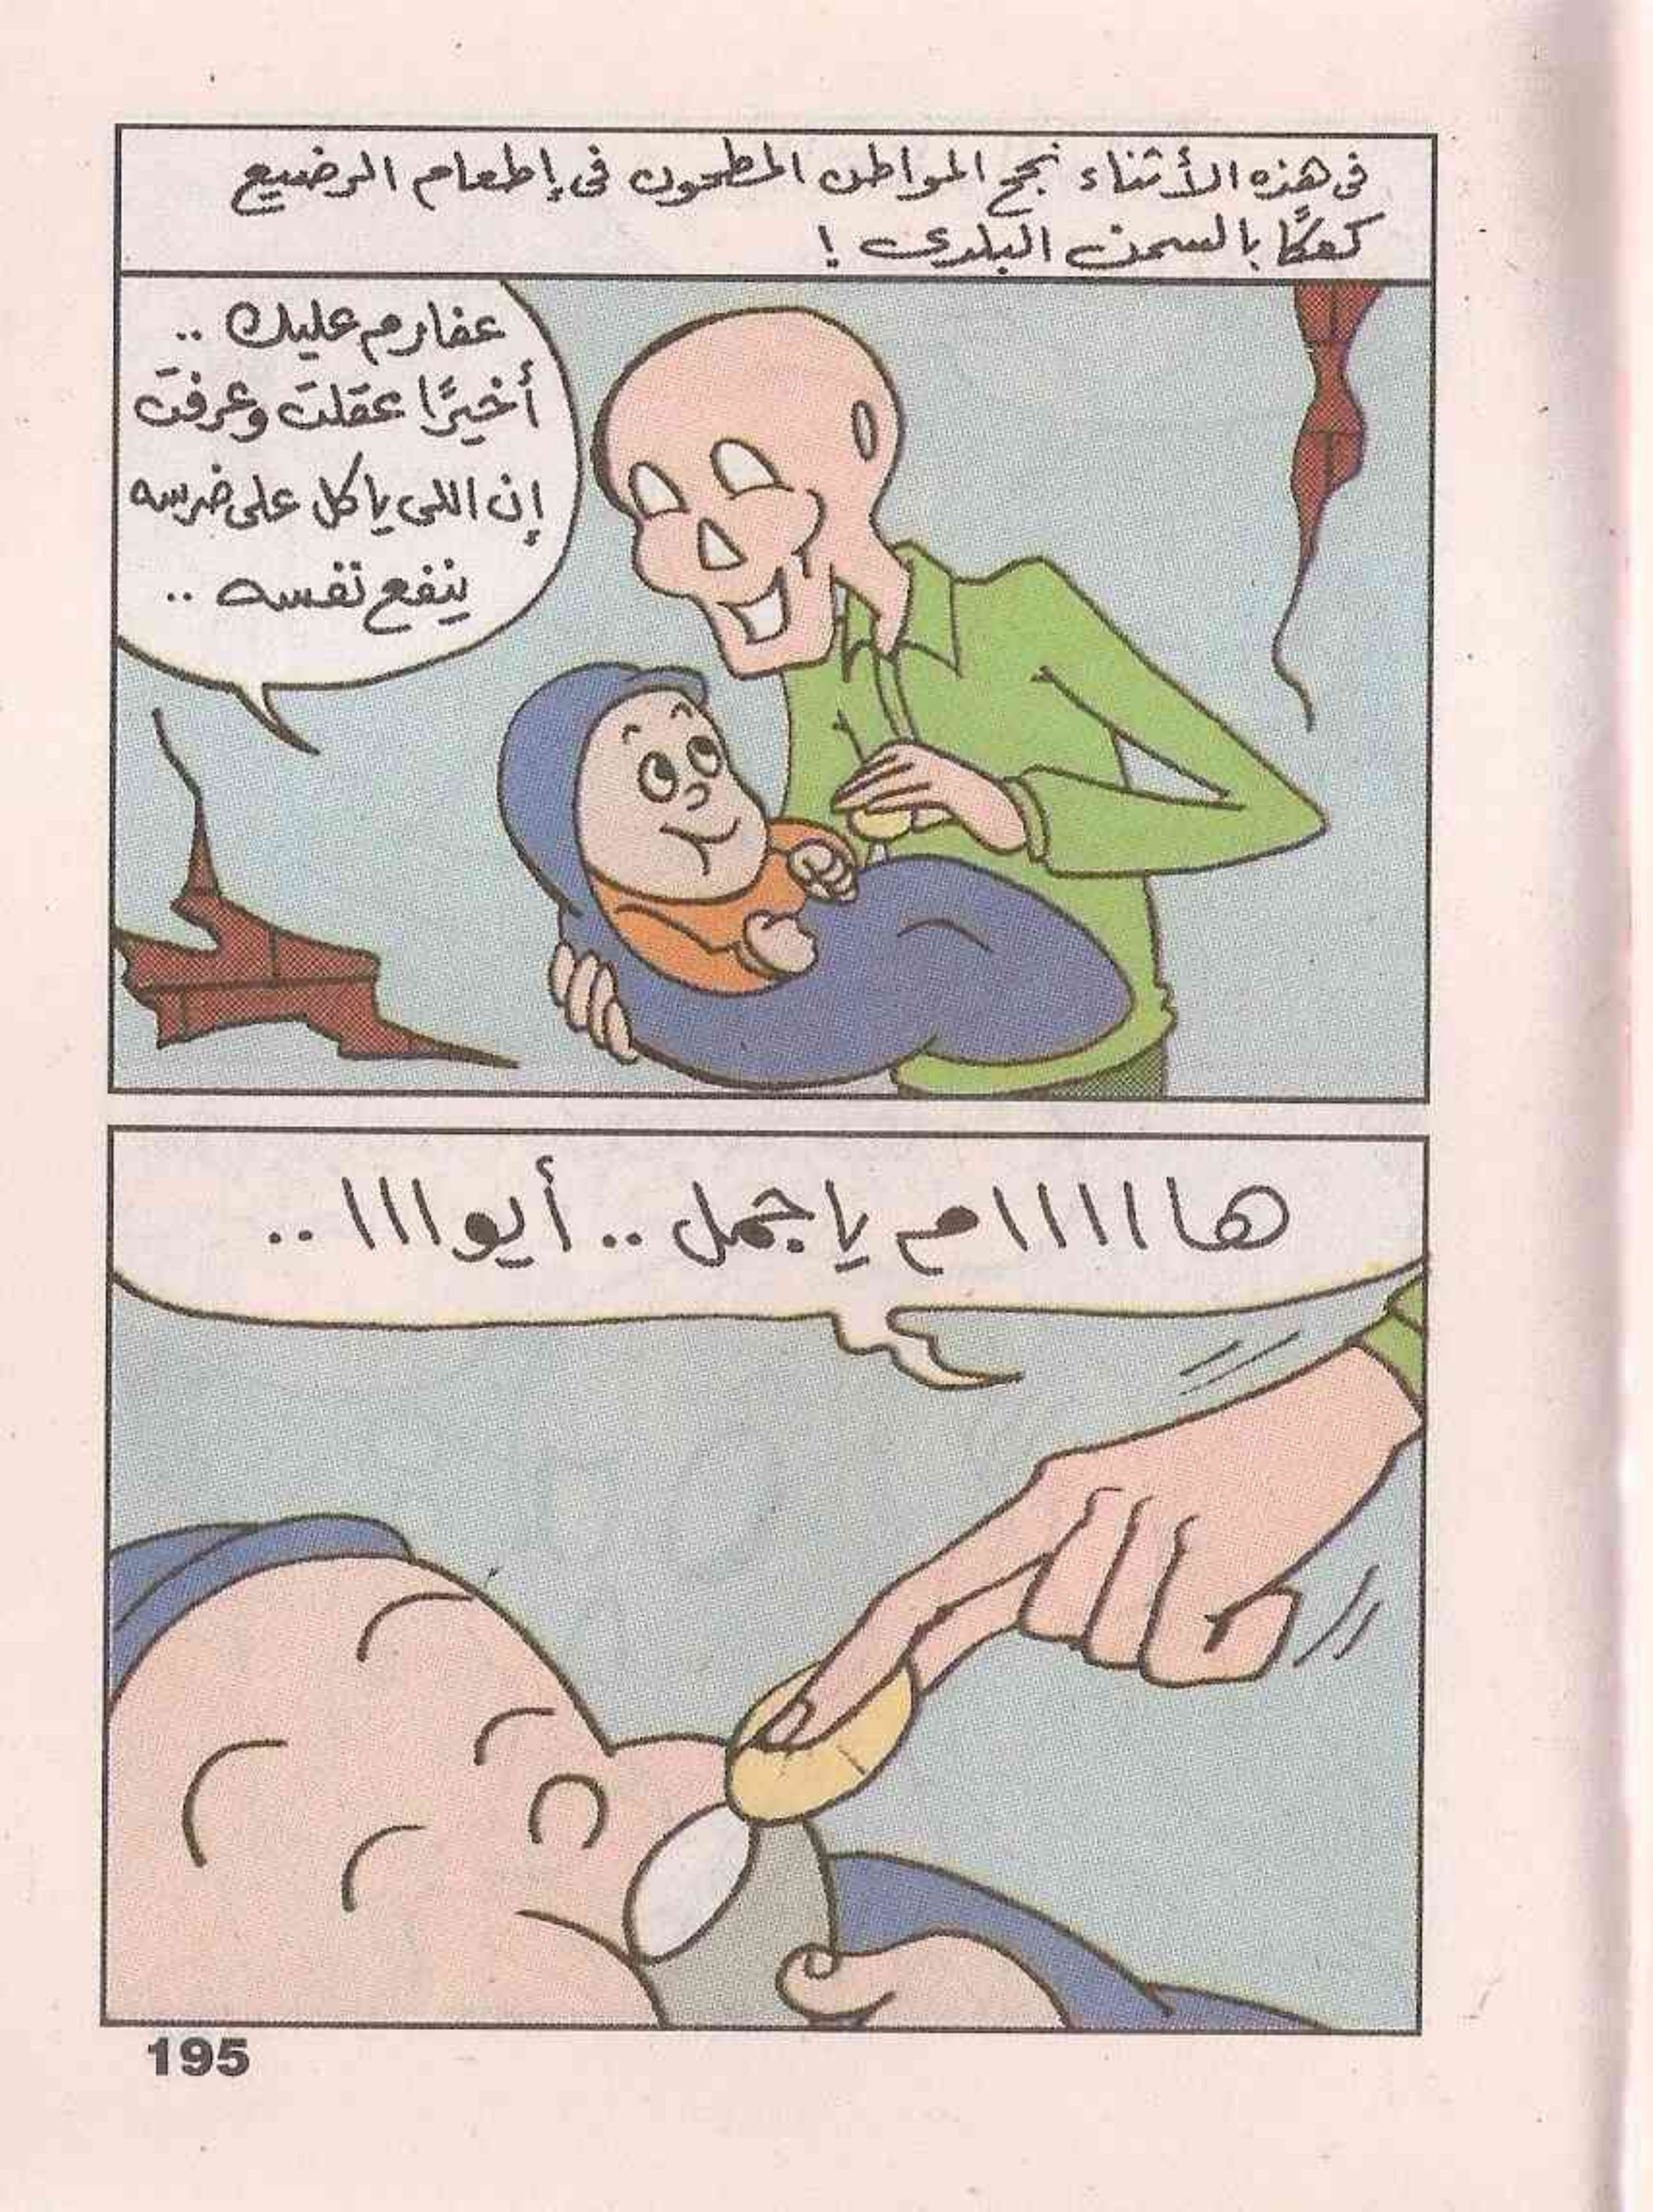 فى هذه الأثناء نجح المواطن المطحون فى إطعام الرضيع
كعكًا بالسمن البلدى !
عفارم عليك ..
أخيرًا عقلت وعرفت
إن اللى ياكل على ضرسه
ينفع نفسه ..
هااااام يا جمل .. أيوااا ..
195